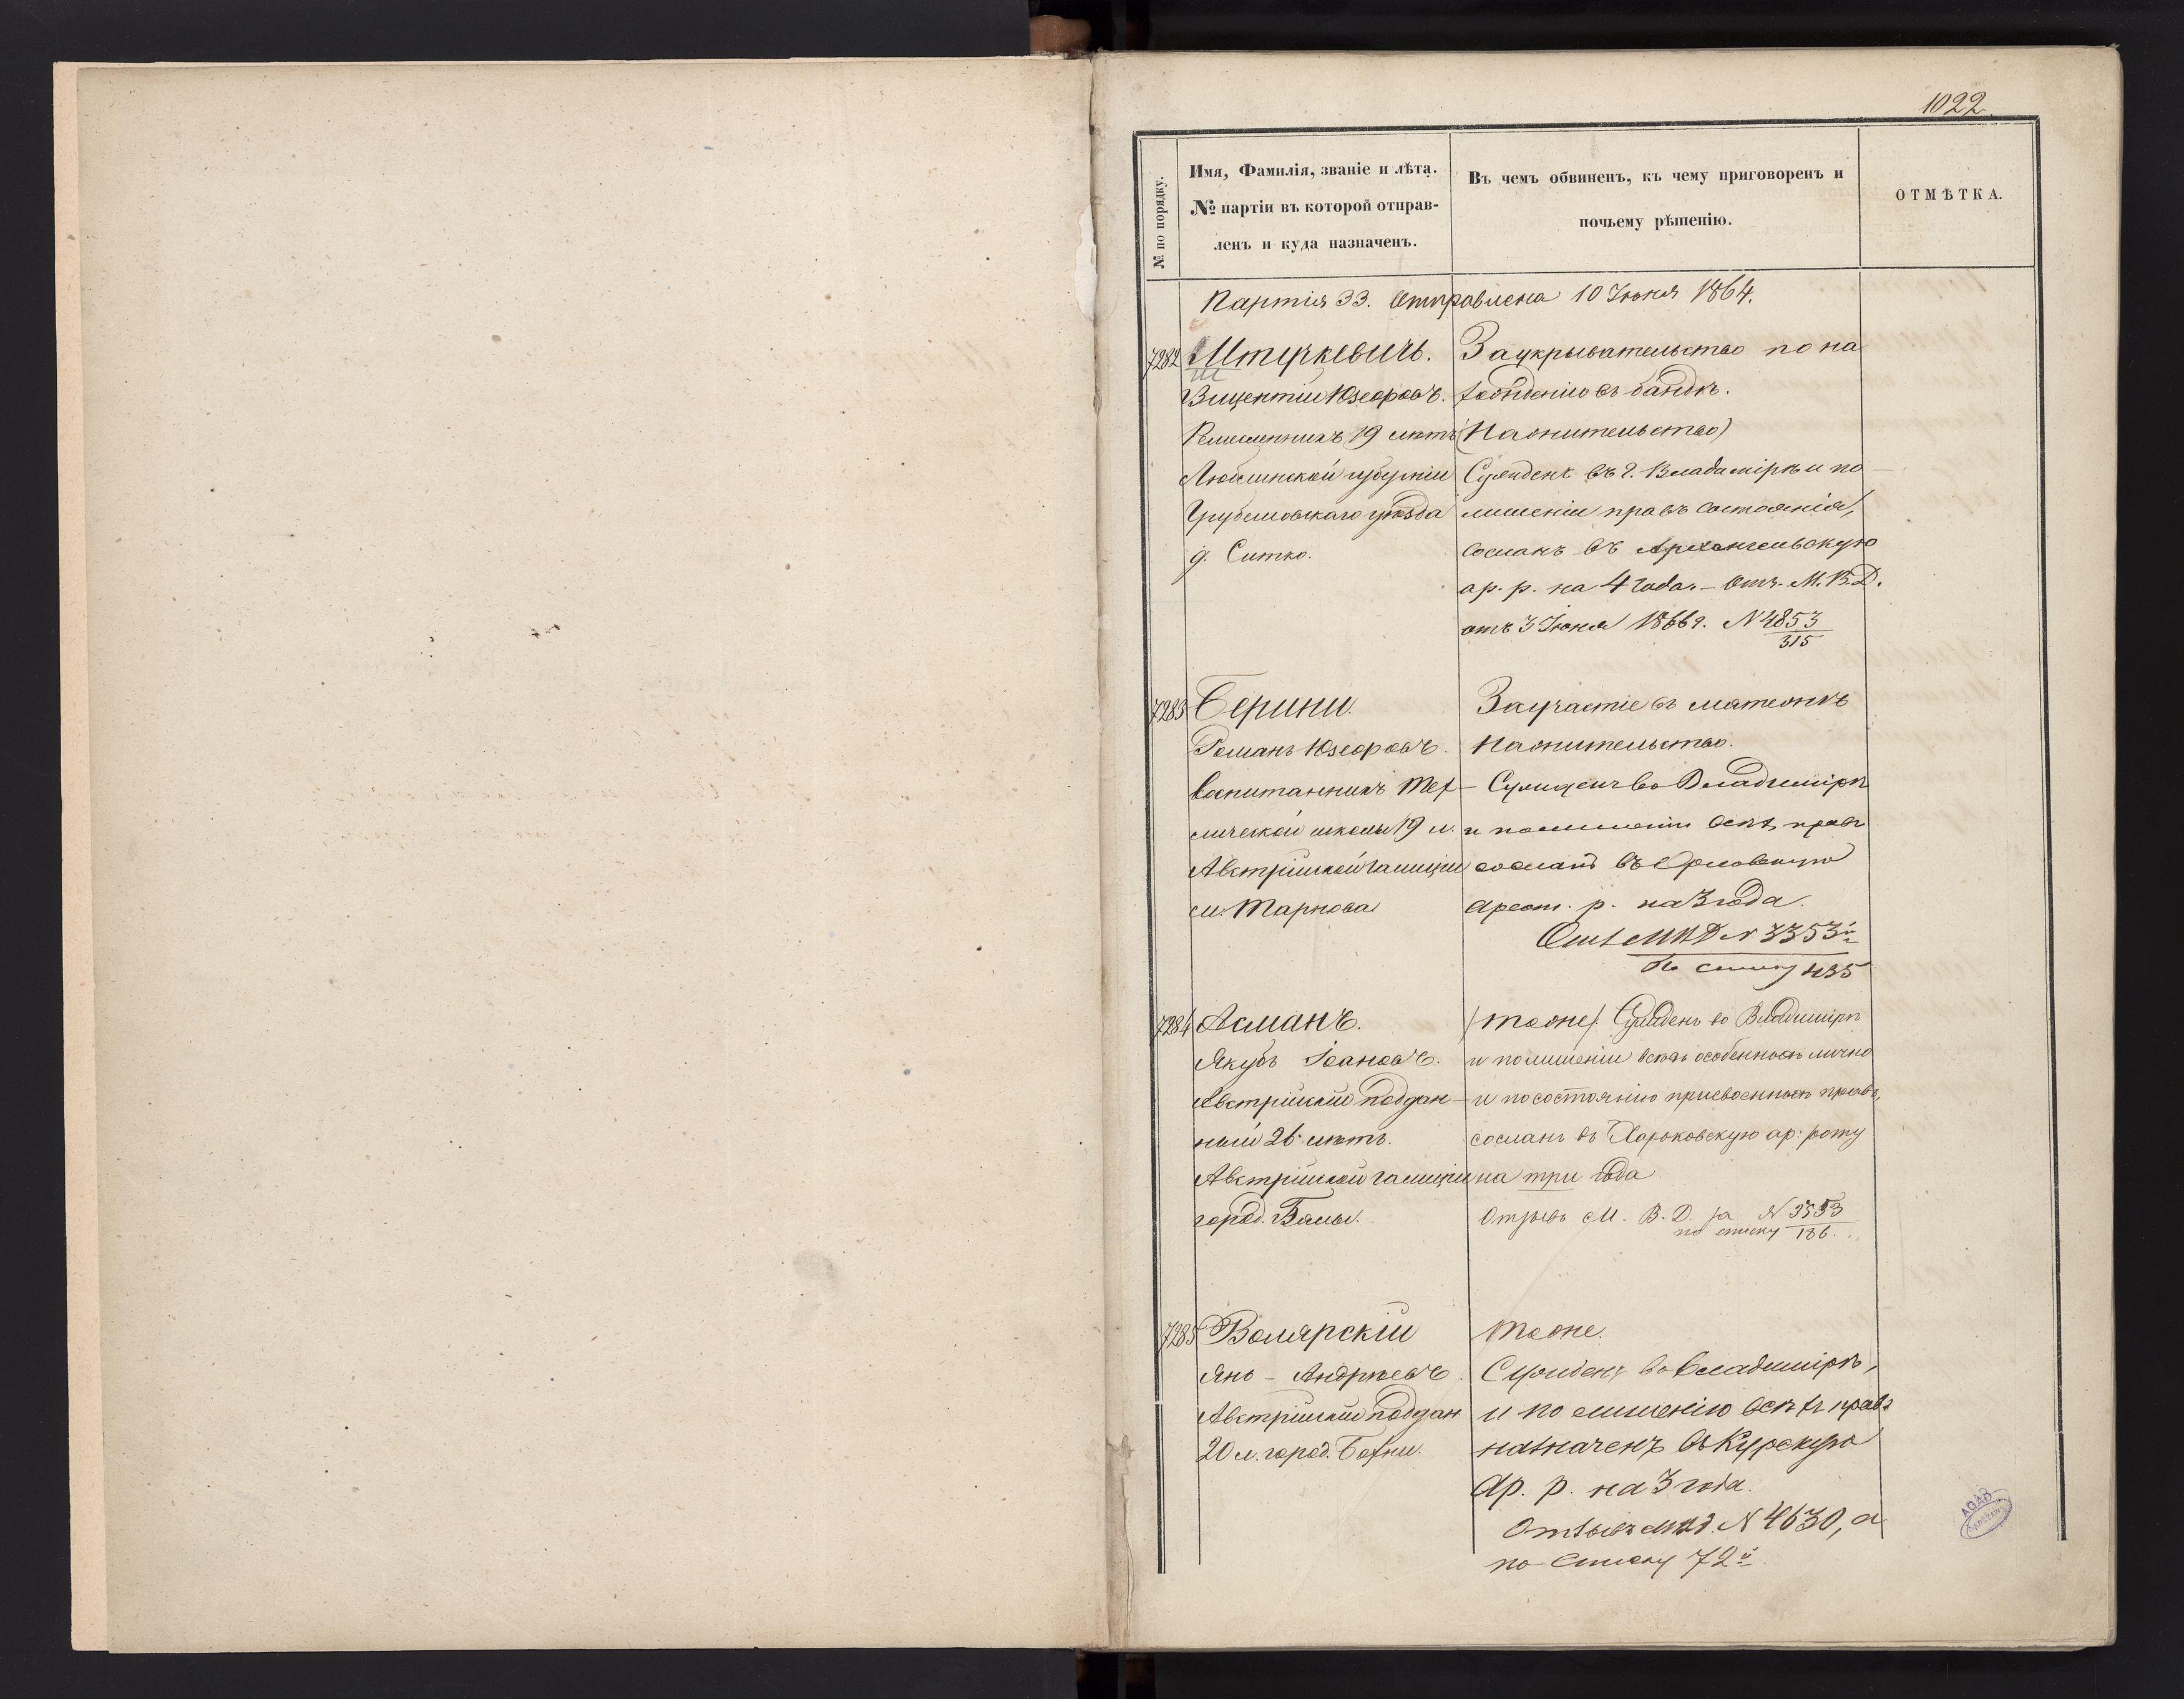 1022.
№ по порядку.
Имя, Фамилія, званіе и лѣта.
№ партіи въ которой отправ-
ленъ и куда назначенъ.
Въ чемъ обвиненъ, къ чему приговоренъ и
почьему рѣшенію.
ОТМѢТКА.
Партія 33. Отправлена 10 Іюня 1864.
7282
Штукевичъ.
Вицентій Юзефовъ.
19 лѣтъ
Люблинской губерніи
Грубешовскаго уѣзда
д. Ситко.
За укрывательство по на
хожденію въ бандѣ.
Сужденъ въ г. Владимірѣ и по
лишеніи правъ состоянія,
сосланъ въ Архангельскую
ар. р. на 4 года. – Отз. М. В. Д.
отъ 3 Іюня 1866 г. N 4853
315
7283
Берини.
Романъ Юзефовъ.
воспитанникъ Тех-
нической школы 19 л.
Австрійской Галиціи
м. Тарнова
За участіе въ мятежѣ
Сужденъ во Владимірѣ
и по лишеніи всѣхъ правъ
сосланъ въ Орловскую
арест. р. на 3 года.
N 3353й
по списку 435
7284
Асманъ.
Якубъ Івановъ.
Австрійскій поддан-
ный 26 лѣтъ.
Австрійской Галиціи
город. Бялы.
/тоже/. Сужденъ во Владимірѣ
и по лишеніи всѣхъ особенныхъ лично
и по состоянію присвоенныхъ правъ,
сосланъ въ Харьковскую ар: роту
на три года.
Отзывъ М. В. Д. за N 3553
по списку 136.
7285
Волярскій
Янъ – Андреевъ.
Австрійскій поддан
20 л. город. Бохни.
тоже.
Сужденъ во Владимірѣ,
и по лишенію всѣхъ правъ
назначенъ въ Курскую
Ар. р. на 3 года.
Отзывъ мвд. N 4630, а
по списку 72й.
AGAD
WARSZAWA